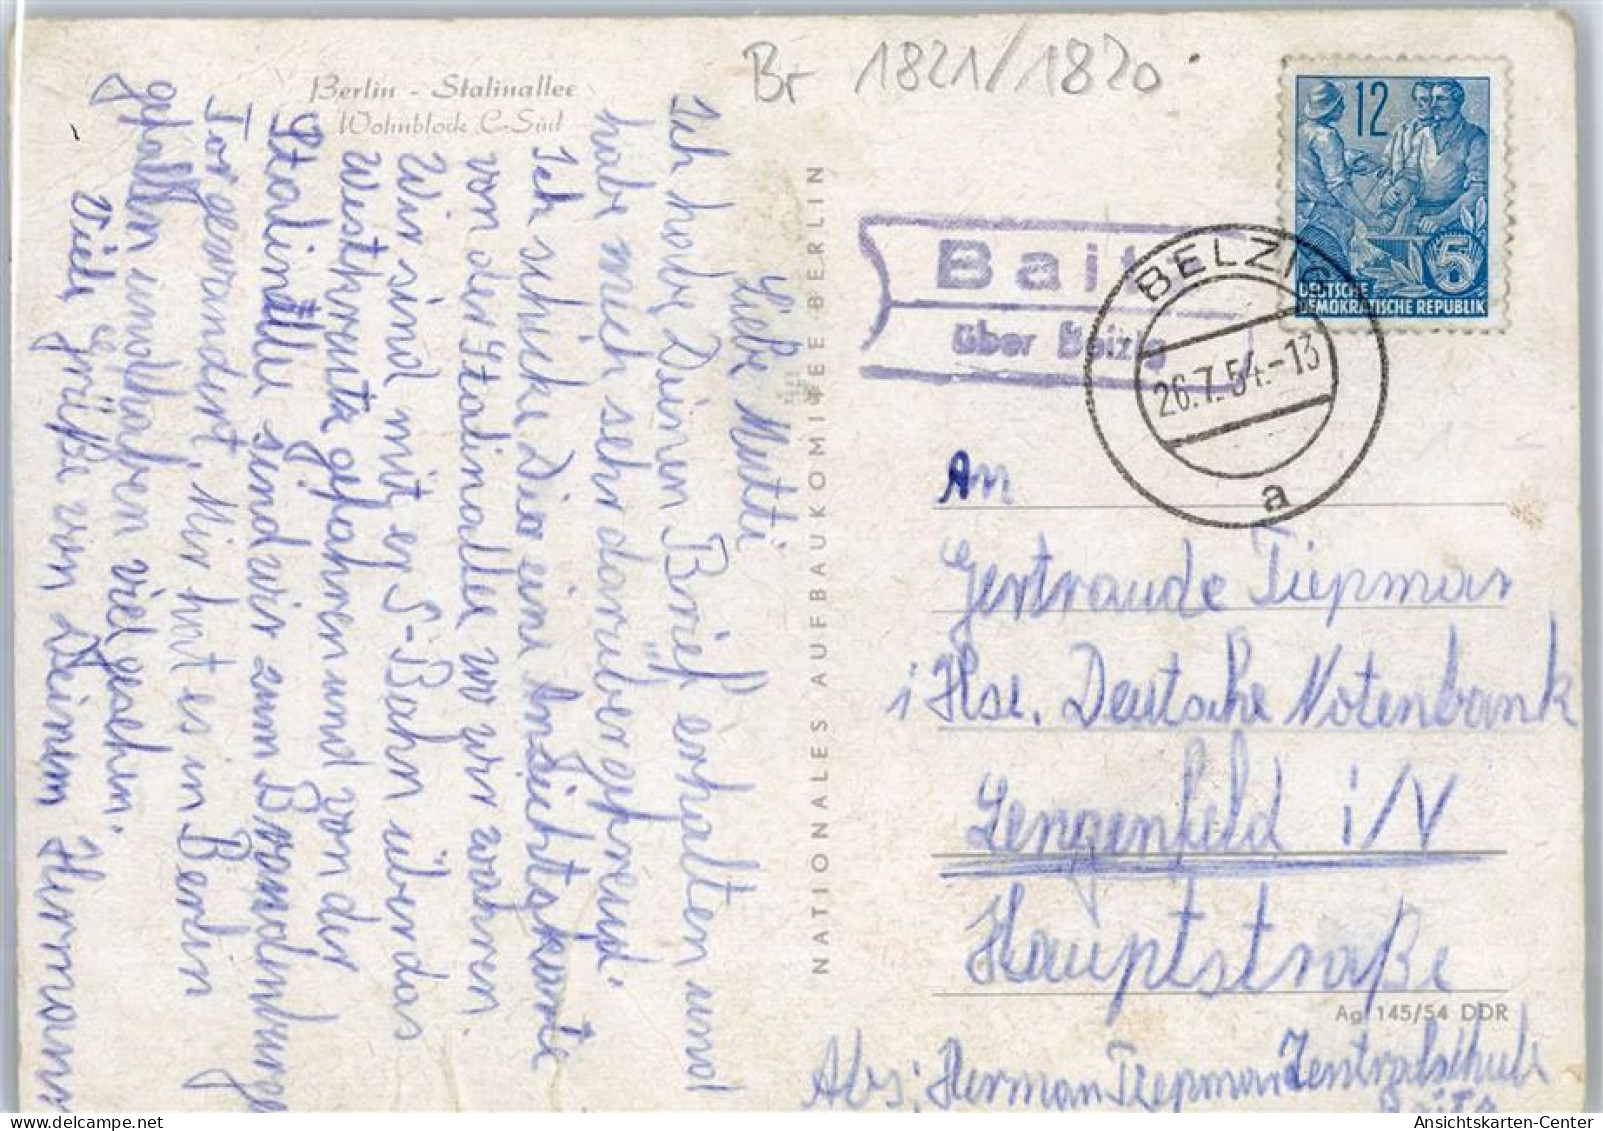 Berlin - Stalinallee
Wohnblock C-Süd
Br 1821/1820
12
5
DEUTSCHE
DEMOKRATISCHE REPUBLIK
Baitz
über Belzig
BELZIG
26.7.54.-13
a
Liebe Mutti
Ich habe Deinen Brief erhalten und
habe mich sehr darüber gefreud.
Ich schicke Dir eine Ansichtskarte
von der Stalinallee wo wir waren.
Wir sind mit er S-Bahn über das
Westkreuz gefahren und von der
Stalinallee sind wir zum Brandenburger
Tor gewandert. Mir hat es in Berlin
gefallen und haben viel gesehen.
Viele Grüße von Deinem Hermann
NATIONALES AUFBAUKOMITEE BERLIN
An
Gertraude Tiepmar
i Hse. Deutsche Notenbank
Lengenfeld i/V
Hauptstraße
Ag 145/54 DDR
Abs; Herman Tiepmar Zentralschule
Baitz
Ansichtskarten-Center